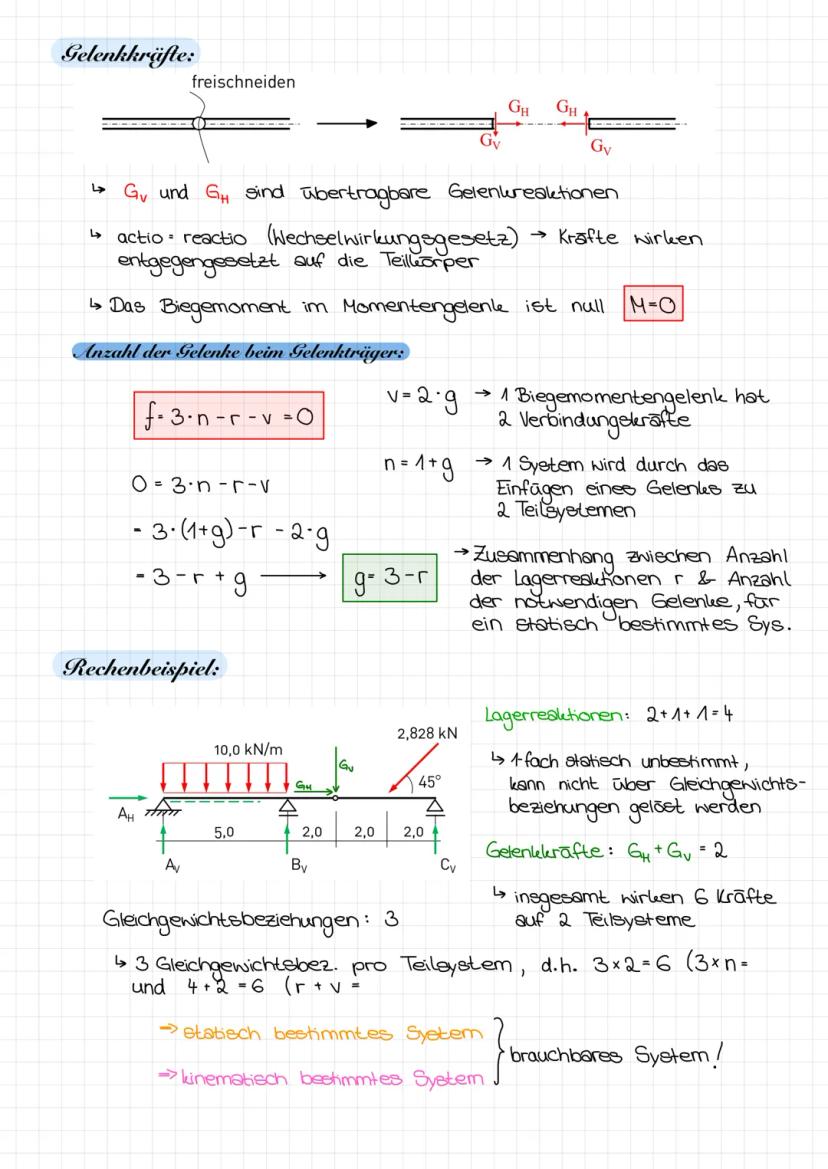 Gelenkkräfte:
freischneiden
G_H G_H
G_V G_V
↳ G_V und G_H sind übertragbare Gelenkreaktionen
↳ actio = reactio (Wechselwirkungsgesetz) → Kräfte wirken
entgegengesetzt auf die Teilkörper
↳ Das Biegemoment im Momentengelenk ist null M=0
Anzahl der Gelenke beim Gelenkträger:
f = 3·n - r - v = 0
v = 2·g → 1 Biegemomentengelenk hat
2 Verbindungskräfte
n = 1+g → 1 System wird durch das
Einfügen eines Gelenkes zu
2 Teilsystemen
0 = 3·n - r - v
= 3·(1+g) - r - 2·g
= 3 - r + g → g = 3 - r
→ Zusammenhang zwischen Anzahl
der Lagerreaktionen r & Anzahl
der notwendigen Gelenke, für
ein statisch bestimmtes Sys.
Rechenbeispiel:
10,0 kN/m
2,828 kN
G_H
G_V
45°
A_H
5,0 2,0 2,0 2,0
A_V B_V C_V
Lagerreaktionen: 2+1+1=4
↳ 1-fach statisch unbestimmt,
kann nicht über Gleichgewichts-
beziehungen gelöst werden
Gelenkkräfte: G_H + G_V = 2
↳ insgesamt wirken 6 Kräfte
auf 2 Teilsysteme
Gleichgewichtsbeziehungen: 3
↳ 3 Gleichgewichtsbez. pro Teilsystem, d.h. 3×2=6 (3×n =
und 4+2 = 6 (r + v =
⇒ statisch bestimmtes System
⇒ kinematisch bestimmtes System
brauchbares System!